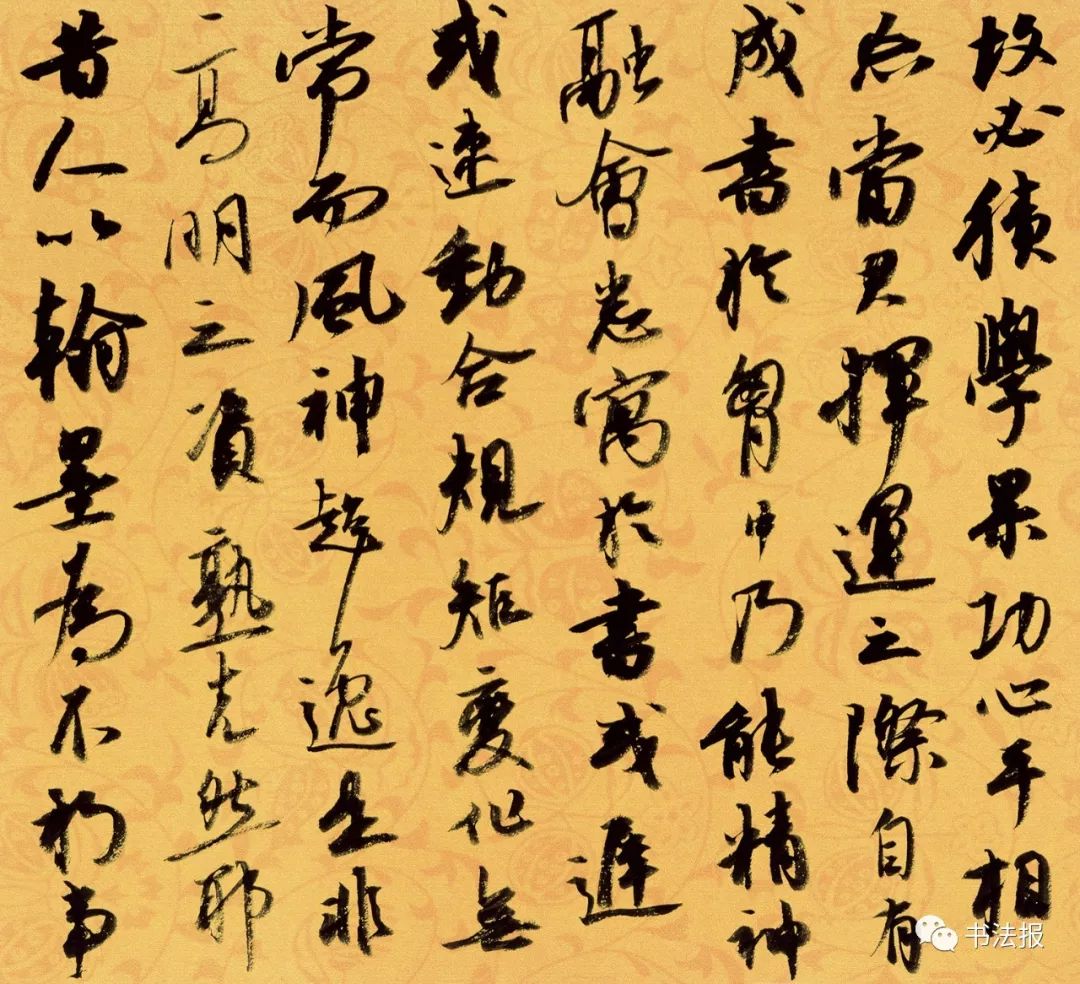 故必積學累功心手相
忘當其揮運之際自有
成書於胸中乃能精神
融會悉寓於書或遲
或速動合規矩變化無
常而風神超逸是非
高明之資熟克然耶
昔人以翰墨為不朽事
书法报